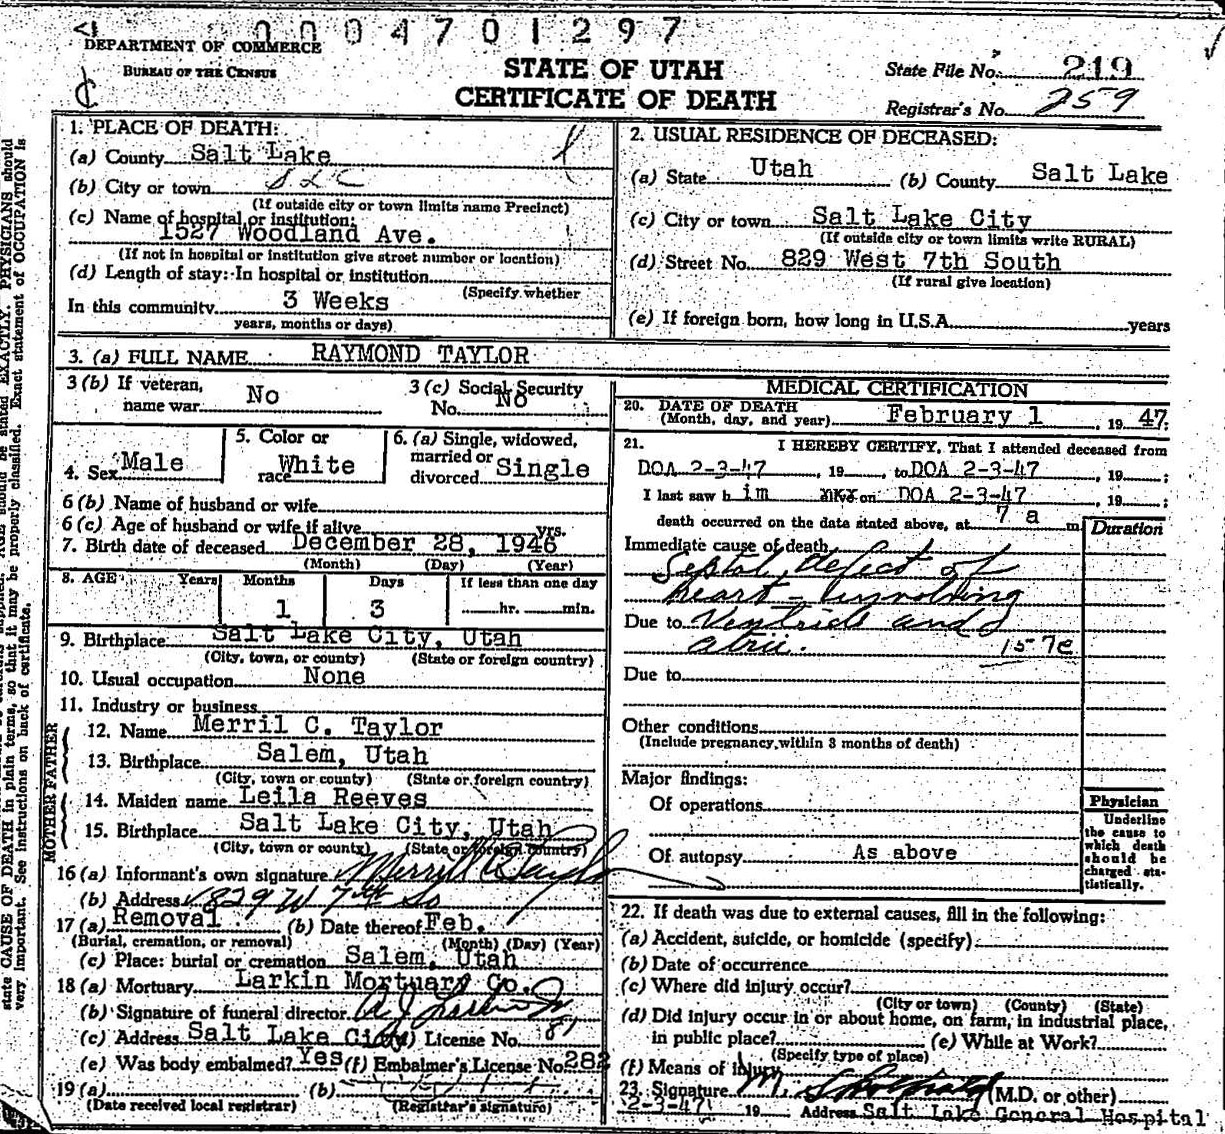 0004701297
DEPARTMENT OF COMMERCE
BUREAU OF THE CENSUS
STATE OF UTAH
CERTIFICATE OF DEATH
State File No. 219
Registrar's No. 259
1. PLACE OF DEATH:
(a) County Salt Lake
(b) City or town SLC
(If outside city or town limits name Precinct)
(c) Name of hospital or institution:
1527 Woodland Ave.
(If not in hospital or institution give street number or location)
(d) Length of stay: In hospital or institution
(Specify whether
In this community 3 Weeks
years, months or days)
2. USUAL RESIDENCE OF DECEASED:
(a) State Utah (b) County Salt Lake
(c) City or town Salt Lake City
(If outside city or town limits write RURAL)
(d) Street No. 829 West 7th South
(If rural give location)
(e) If foreign born, how long in U.S.A. years
3. (a) FULL NAME RAYMOND TAYLOR
3 (b) If veteran, name war No
3 (c) Social Security No. No
4. Sex Male
5. Color or race White
6. (a) Single, widowed, married or divorced Single
6 (b) Name of husband or wife
6 (c) Age of husband or wife if alive yrs.
7. Birth date of deceased December 28, 1946
(Month) (Day) (Year)
8. AGE Years Months Days If less than one day
1 3 hr. min.
9. Birthplace Salt Lake City, Utah
(City, town, or county) (State or foreign country)
10. Usual occupation None
11. Industry or business
FATHER
12. Name Merril C. Taylor
13. Birthplace Salem, Utah
(City, town or county) (State or foreign country)
MOTHER
14. Maiden name Leila Reeves
15. Birthplace Salt Lake City, Utah
(City, town or county) (State or foreign country)
16 (a) Informant's own signature Merrill C Taylor
(b) Address 829 W 7th So
17 (a) Removal (b) Date thereof Feb.
(Burial, cremation, or removal) (Month) (Day) (Year)
(c) Place: burial or cremation Salem, Utah
18 (a) Mortuary Larkin Mortuary Co.
(b) Signature of funeral director
(c) Address Salt Lake City License No. 81
(e) Was body embalmed? Yes (f) Embalmer's License No 282
19 (a) (b)
(Date received local registrar) (Registrar's signature)
MEDICAL CERTIFICATION
20. DATE OF DEATH
(Month, day, and year) February 1, 1947;
21. I HEREBY CERTIFY, That I attended deceased from
DOA 2-3-47, 19, to DOA 2-3-47, 19;
I last saw him on DOA 2-3-47 19;
death occurred on the date stated above, at 7 a m.
Duration
Immediate cause of death
Septal defect of
heart - involving
Due to Ventricle and
atrii. 157e
Due to
Other conditions
(Include pregnancy within 3 months of death)
Major findings:
Of operations
Of autopsy As above
Physician
Underline
the cause to
which death
should be
charged sta-
tistically.
22. If death was due to external causes, fill in the following:
(a) Accident, suicide, or homicide (specify)
(b) Date of occurrence
(c) Where did injury occur?
(City or town) (County) (State)
(d) Did injury occur in or about home, on farm, in industrial place,
in public place? (e) While at Work?
(Specify type of place)
(f) Means of injury
23. Signature M. (M.D. or other)
2-3-47 19 Address Salt Lake General Hospital
state CAUSE OF DEATH in plain terms, so that it may be properly classified. Exact statement of OCCUPATION is
very important. See instructions on back of certificate.